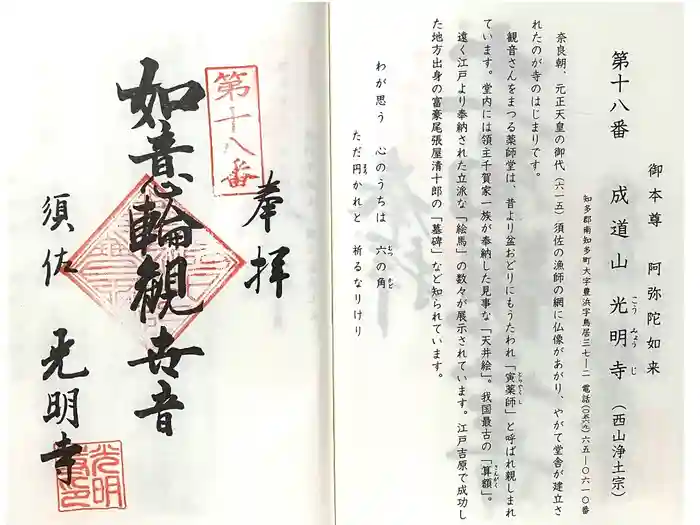 御本尊　阿弥陀如来
第十八番　成道山　光明寺（西山浄土宗）
こう　みょう　じ
知多郡南知多町大字豊浜字鳥居三七ー二　電話（〇五六九）六五ー〇六一〇番
奈良朝、元正天皇の御代（六一五）須佐の漁師の網に仏像があがり、やがて堂舎が建立さ
れたのが寺のはじまりです。
観音さんをまつる薬師堂は、昔より盆おどりにもうたわれ「寅薬師」と呼ばれ親しまれ
とらやくし
ています。堂内には領主千賀家一族が奉納した見事な「天井絵」。我国最古の「算額」。
さんがく
遠く江戸より奉納された立派な「絵馬」の数々が展示されています。江戸吉原で成功し
た地方出身の富豪尾張屋清十郎の「墓碑」など知られています。
わが思う　心のうちは　六の角
むつ　かど
ただ円かれと　祈るなりけり
まる
奉拝
第十八番
如意輪観世音
須佐　光明寺
光明